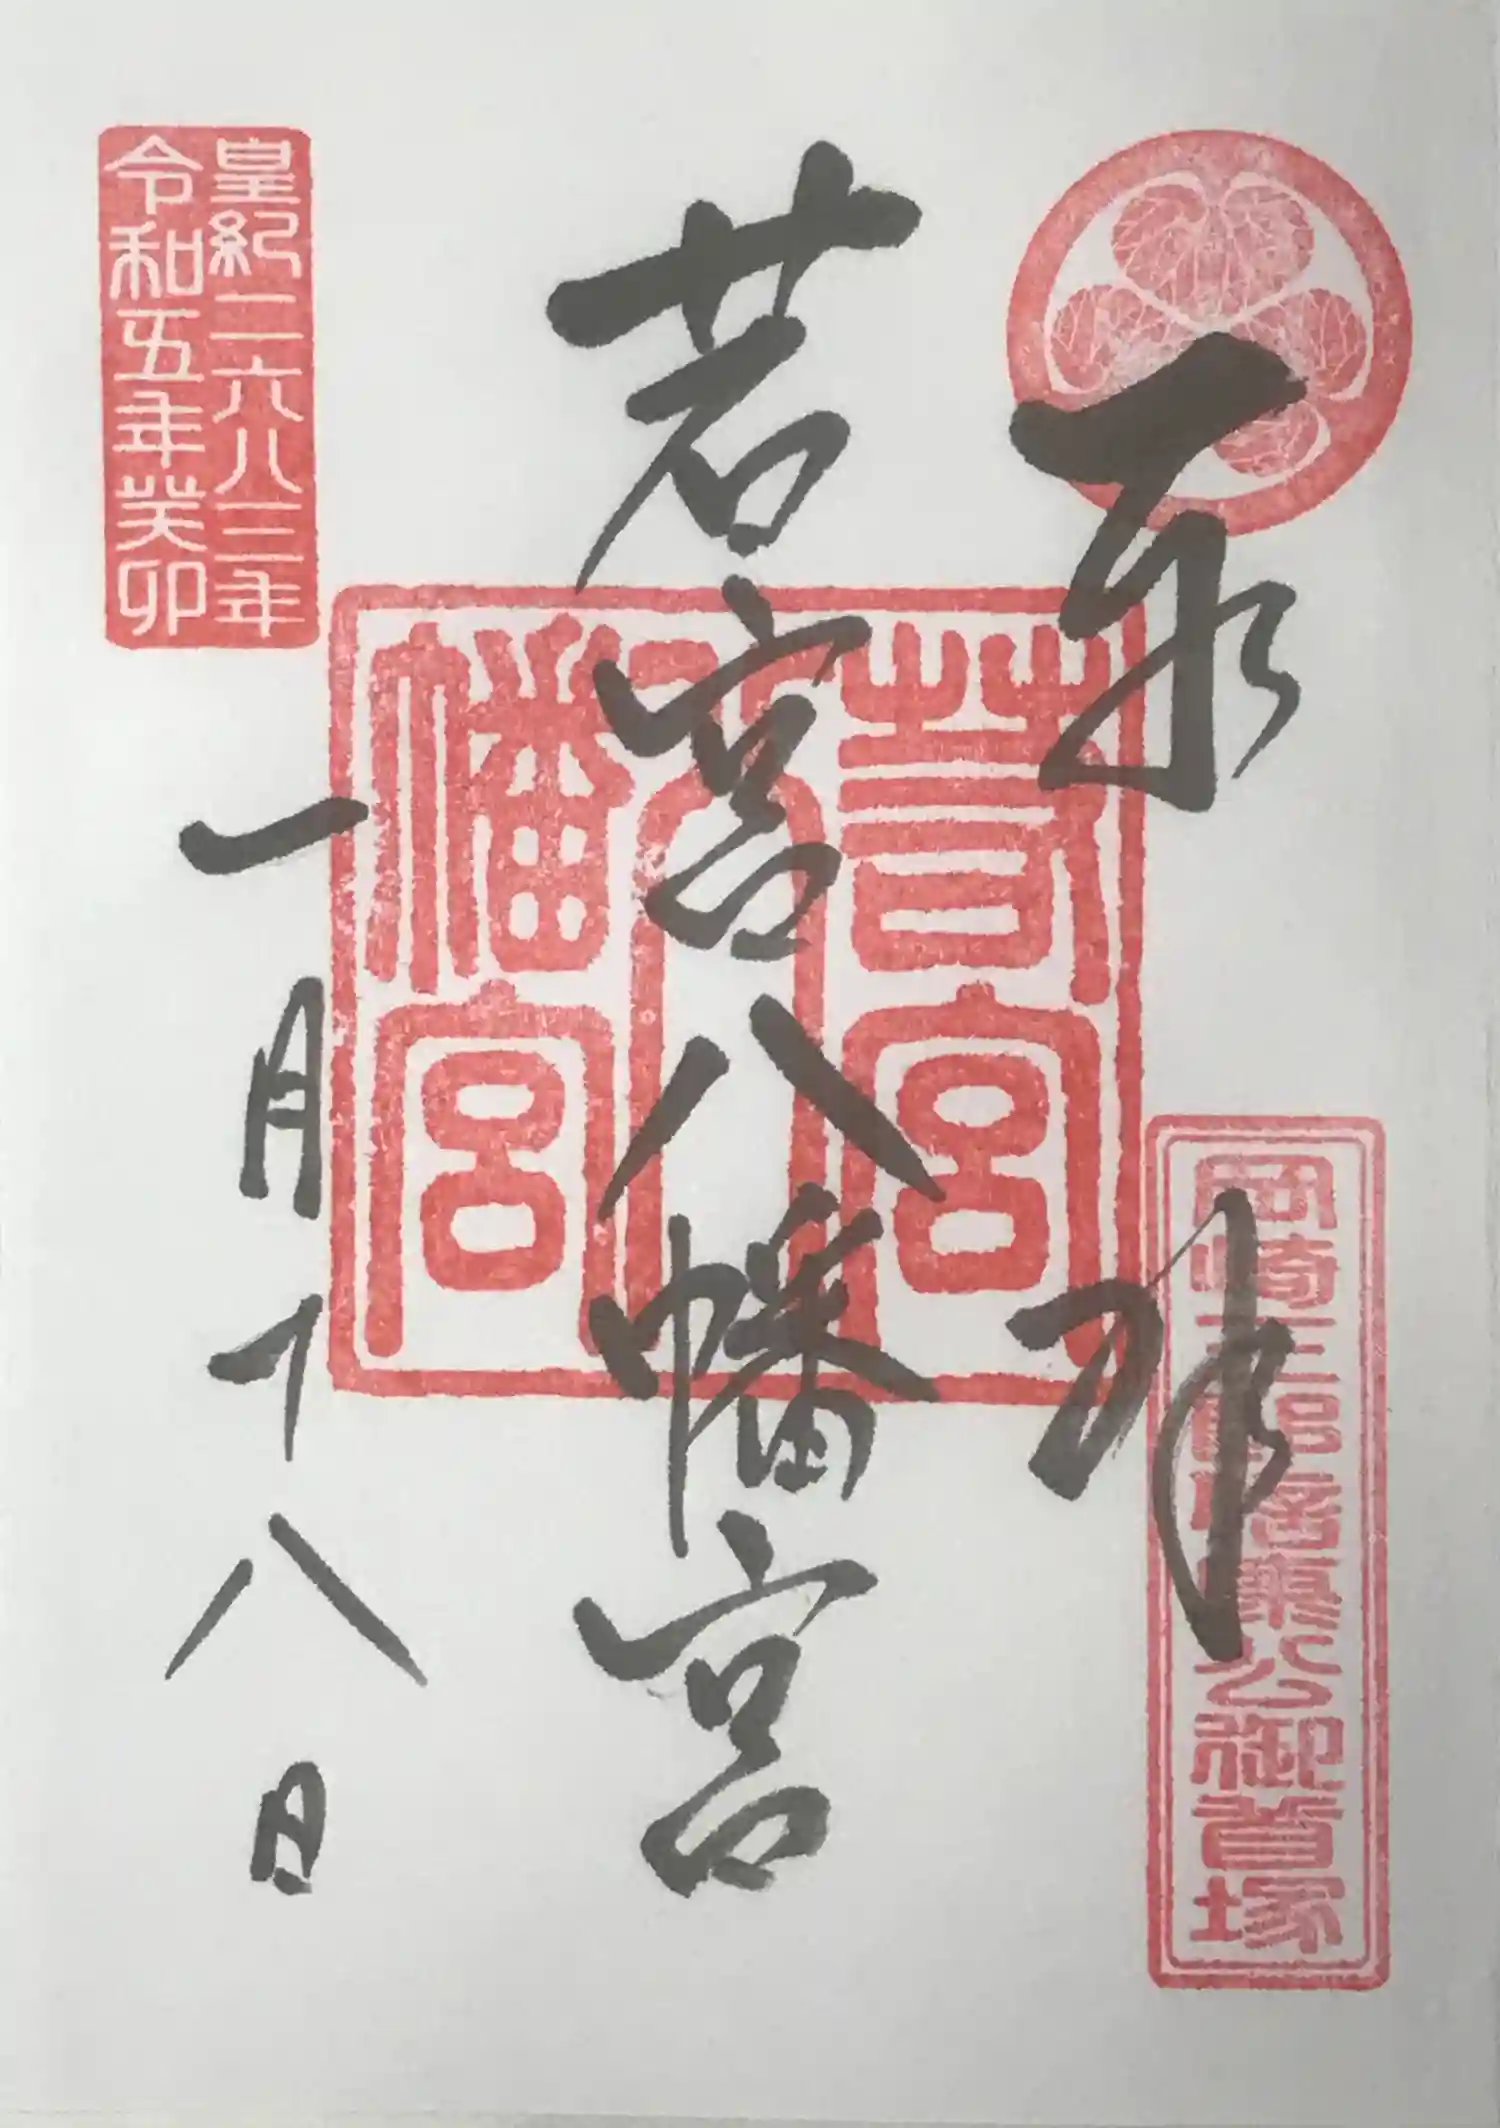 奉拝
岡崎三郎信康公御首塚
若宮八幡宮
若宮
八
幡宮
一月十八日
皇紀二六八三年
令和五年癸卯